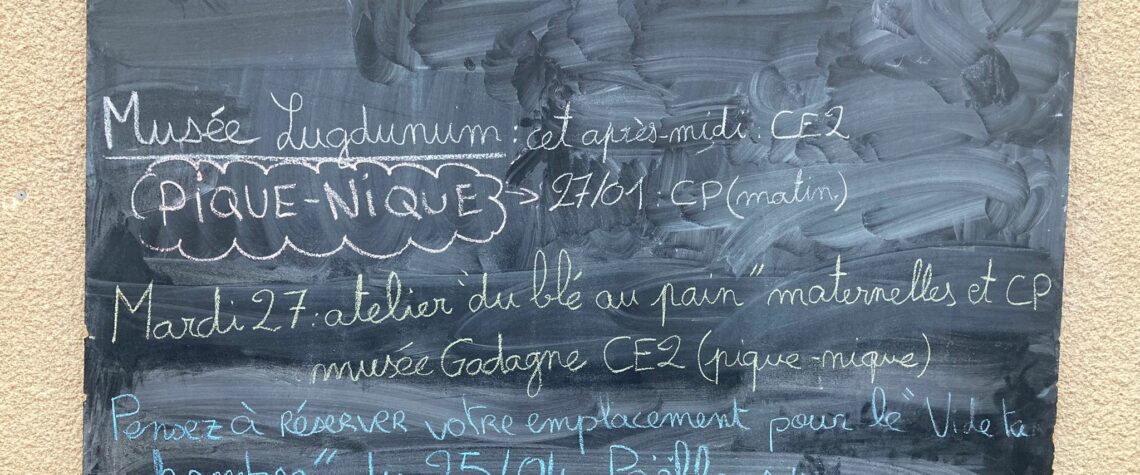 Musée Lugdunum : cet après-midi : CE2
PIQUE-NIQUE → 27/01 : CP (matin)
Mardi 27 : atelier "du blé au pain" maternelles et CP
musée Gadagne CE2 (pique-nique)
Pensez à réserver votre emplacement pour le "Vide ta
chambre" du 25/04